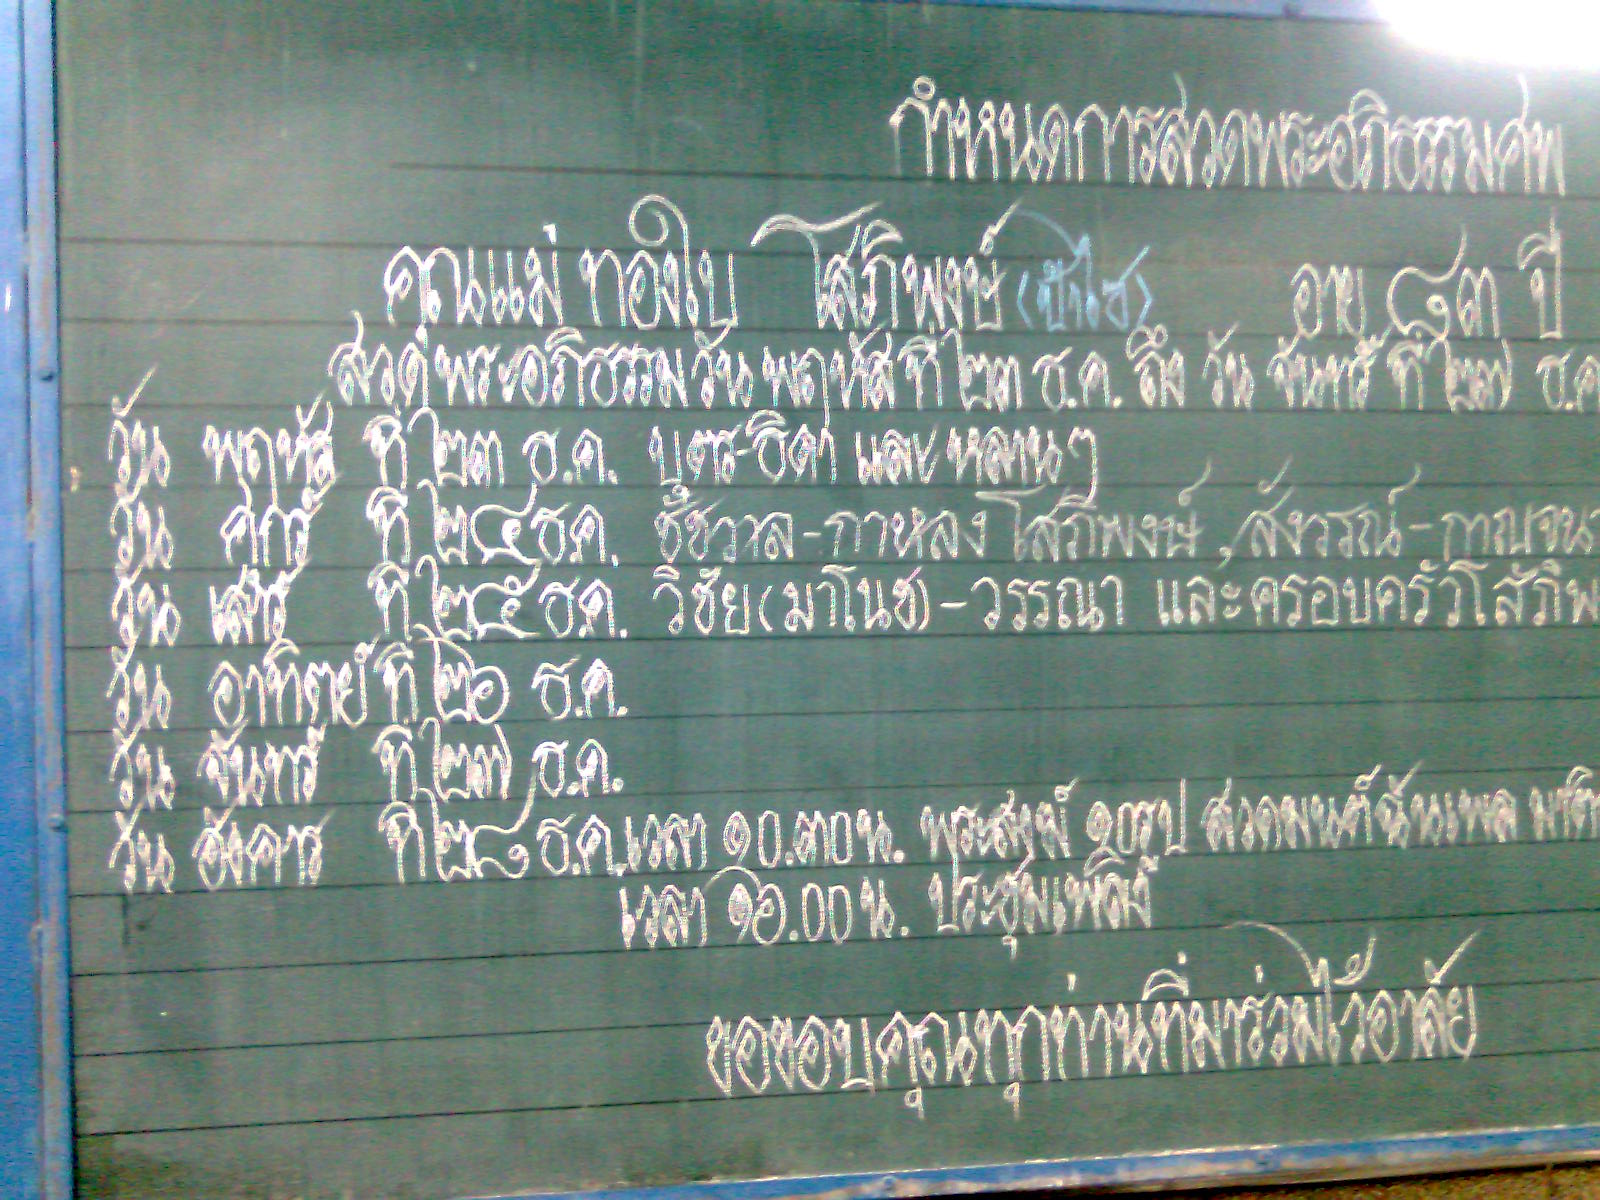 กำหนดการสวดพระอภิธรรมศพ
คุณแม่ ทองใบ โสภีพงษ์ (ป้าไช) อายุ ๘๓ ปี
สวดพระอภิธรรมวัน พฤหัส ที่ ๒๓ ธ.ค. ถึง วัน จันทร์ ที่ ๒๗ ธ.ค
วัน พฤหัส ที่ ๒๓ ธ.ค. บุตร-ธิดา และ หลานๆ
วัน ศุกร์ ที่ ๒๔ ธ.ค. ชัชวาล-กาหลง โสภีพงษ์, สังวรณ์-กาญจนา
วัน เสาร์ ที่ ๒๕ ธ.ค. วิชัย(มาโนช)-วรรณา และครอบครัวโสภีพ
วัน อาทิตย์ ที่ ๒๖ ธ.ค.
วัน จันทร์ ที่ ๒๗ ธ.ค.
วัน อังคาร ที่ ๒๘ ธ.ค. เวลา ๑๐.๓๐ น. พระสงฆ์ ๑๐ รูป สวดมนต์ฉันเพล มาติ
เวลา ๑๖.๐๐ น. ประชุมเพลิง
ขอขอบคุณทุกท่านที่มาร่วมไว้อาลัย